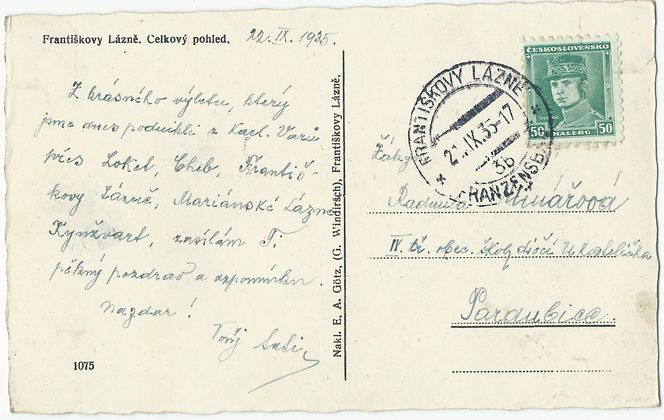 Františkovy Lázně. Celkový pohled.
22. IX. 1935.
Z krásného výletu, který
jsme dnes podnikli z Karl. Varů
přes Loket, Cheb, Františ-
kovy Lázně, Mariánské Lázně
Kynžvart, zasílám Ti
pěkný pozdrav a vzpomínku.
Nazdar!
Tvůj
1075
Nakl. E. A. Götz, (G. Windirsch), Františkovy Lázně.
FRANTIŠKOVY LÁZNĚ
21.IX.35-17
3b
FRANZENSBAD
ČESKOSLOVENSKO
50 HALÉŘŮ 50
Radmila
IV. tř. obec. školy dívčí U Kostelíčka
Pardubice